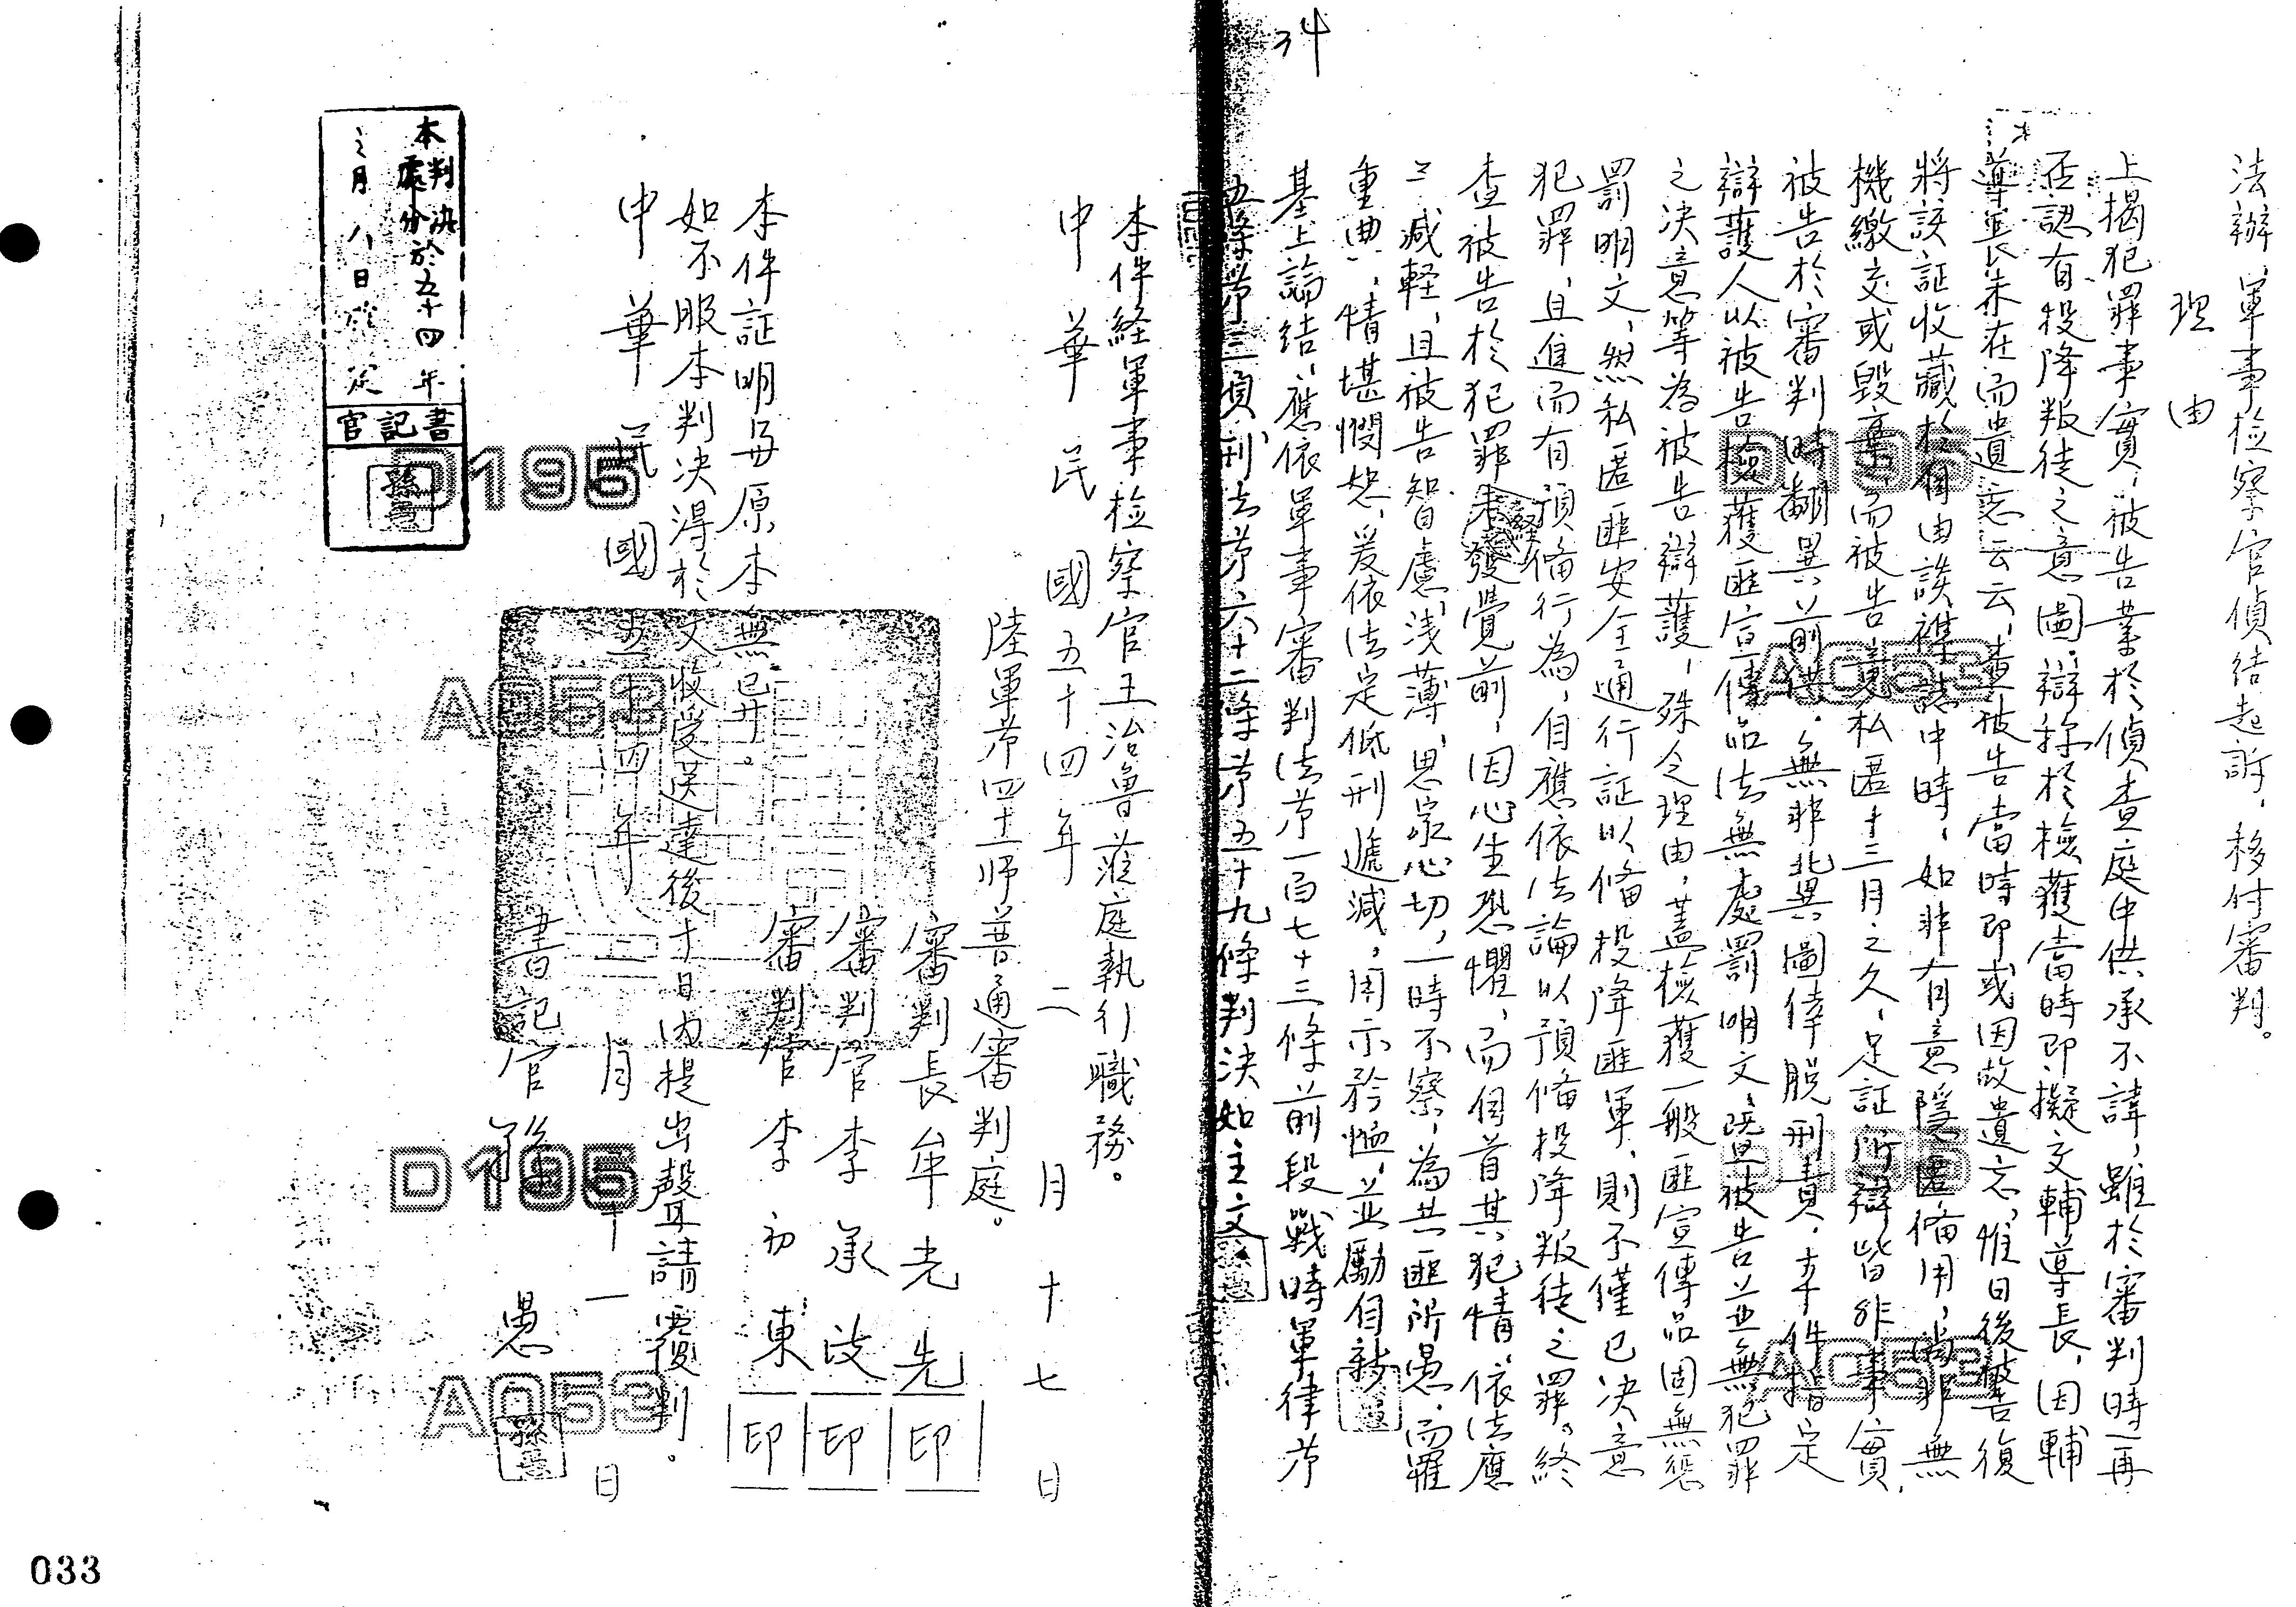 34
法辦軍事檢察官偵結起訴，移付審判。
理由
上揭犯罪事實，被告業於偵查庭中供承不諱，雖於審判時一再
否認有投降叛徒之意圖，辯稱於檢獲當時即擬交輔導長，因輔
導長未在而遺忘云云，查被告當時即或因故遺忘，惟日後被告復
將該証收藏於自由談雜誌中時，如非有意隱匿備用，當非無
機繳交或毀棄，而被告竟私匿十三月之久，足証所辯皆非事實，
被告於審判時翻異前供，無非冀圖倖脫刑責，本件指定
辯護人以被告檢獲匪宣傳品法無處罰明文，暨被告並無犯罪
之決意等為被告辯護，殊令理由，蓋檢獲一般匪宣傳品固無懲
罰明文，然私匿匪安全通行証以備投降匪軍，則不僅已決意
犯罪，且進而有預備行為，自應依法論以預備投降叛徒之罪。終
查被告於犯罪未發覺前，因心生恐懼，而自首其犯情，依法應
予減輕，且被告智慮淺薄，思家心切，一時不察，為共匪所愚，而罹
重典，情堪憫恕，爰依法定低刑遞減，用示矜恤，並勵自新
基上論結，應依軍事審判法第一百七十三條前段戰時軍律第
五條第三項刑法第六十二條第五十九條判決如主文。
本件経軍事檢察官王治魯蒞庭執行職務。
中華民國五十四年二月十七日
陸軍第四十一師普通審判庭。
審判長牟光先 印
審判官李承改 印
審判官李初東 印
本件証明與原本無異。
如不服本判決得於文收受送達後十日內提出聲請覆判。
中華民國五十四年二月二十一日
書記官孫愚
本判決處分於五十四年
三月八日確定
書記官
D195
AC53
D195
A053
D195
AC53
D195
AC53
033